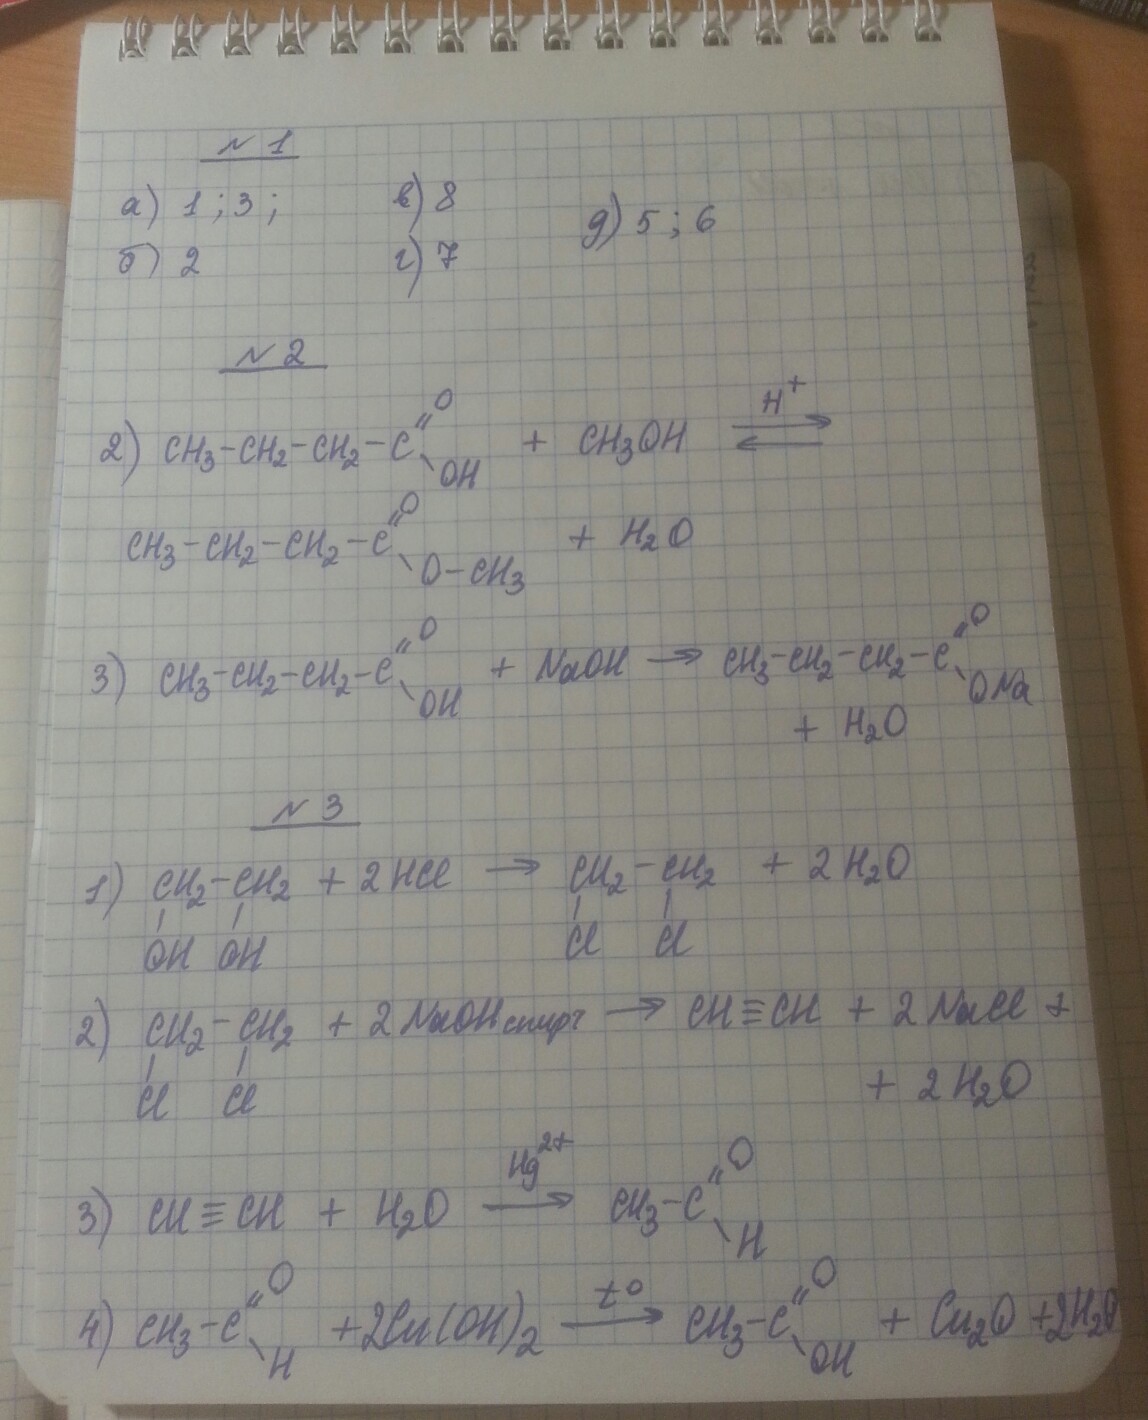 № 1
а) 1 ; 3 ; в) 8 д) 5 ; 6
б) 2 г) 7
№ 2
2) CH3-CH2-CH2-C(=O)(-OH) + CH3OH ⇄ H+
CH3-CH2-CH2-C(=O)(-O-CH3) + H2O
3) CH3-CH2-CH2-C(=O)(-OH) + NaOH → CH3-CH2-CH2-C(=O)(-ONa)
+ H2O
№ 3
1) CH2-CH2 + 2HCl → CH2-CH2 + 2H2O
OH OH Cl Cl
2) CH2-CH2 + 2NaOH спирт → CH≡CH + 2NaCl +
Cl Cl + 2H2O
3) CH≡CH + H2O →Hg2+ CH3-C(=O)(-H)
4) CH3-C(=O)(-H) + 2Cu(OH)2 →t° CH3-C(=O)(-OH) + Cu2O + 2H2O